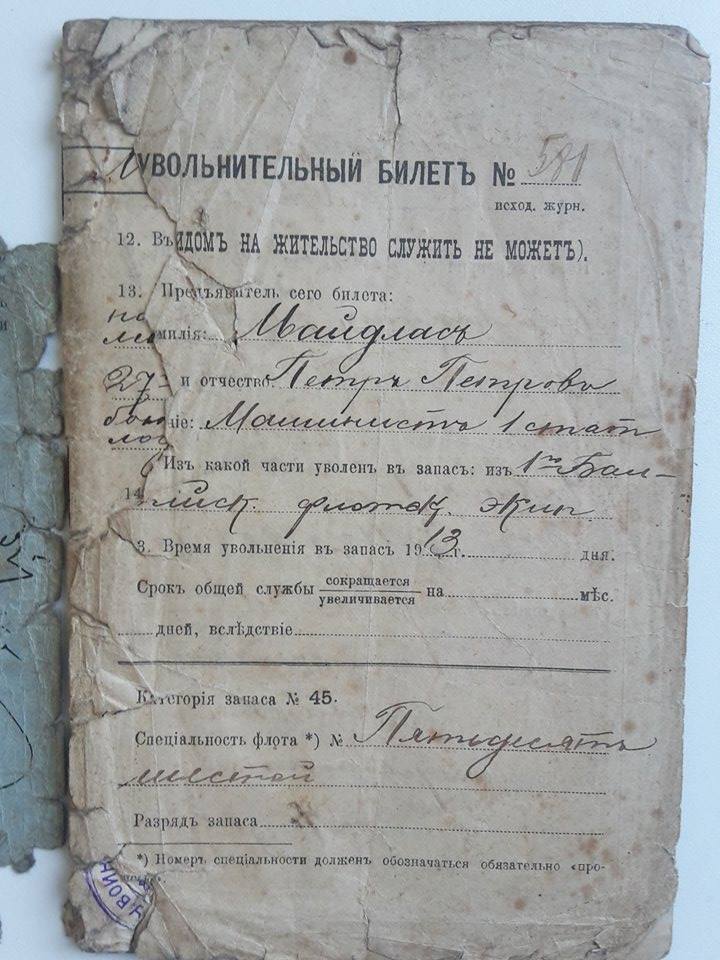 УВОЛЬНИТЕЛЬНЫЙ БИЛЕТЪ № 581
исход. журн.
12. ВИДОМЪ НА ЖИТЕЛЬСТВО СЛУЖИТЬ НЕ МОЖЕТЪ).
13. Предъявитель сего билета:
милія: Майдласъ
27 и отчество Петръ Петровъ
ніе: Машинистъ 1 стат
Изъ какой части уволенъ въ запасъ: изъ 1го Бал-
14 тійск. флотск. экип.
3. Время увольненія въ запасъ 1913 г. дня.
Срокъ общей службы сокращается
увеличивается на мѣс.
дней, вслѣдствіе
Категорія запаса № 45.
Спеціальность флота *) № Пятьдесятъ
шестой
Разрядъ запаса
*) Номеръ спеціальности долженъ обозначаться обязательно «про-
ВОИН